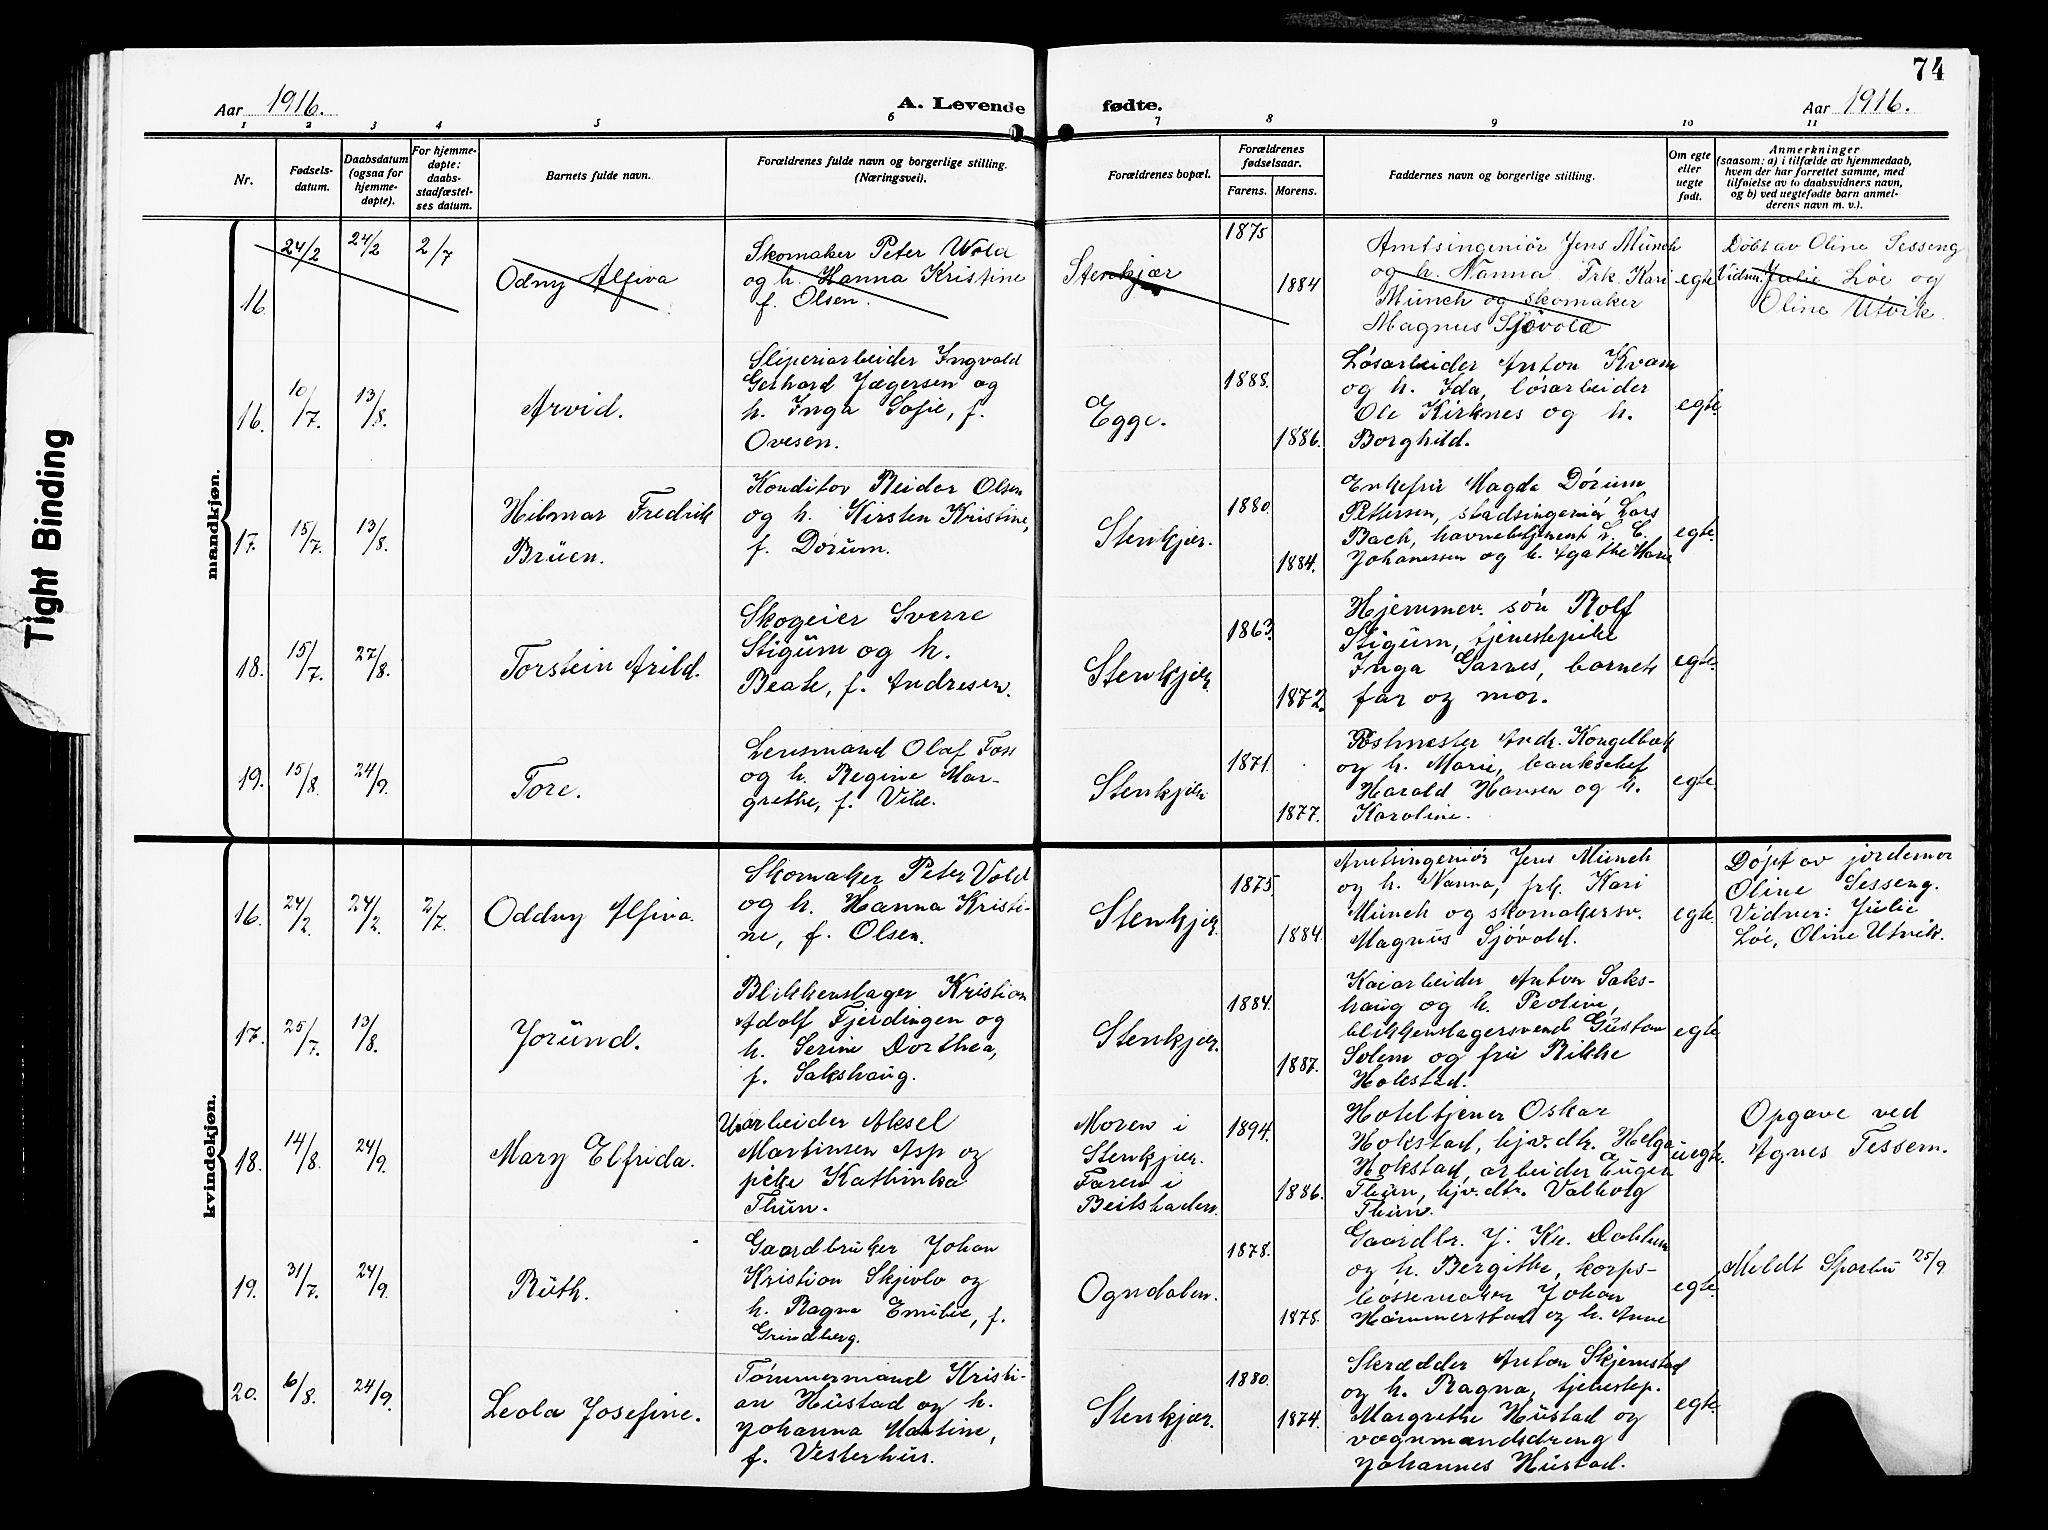 74
Aar 1916.
A. Levende fødte.
Aar 1916.
1 2 3 4 5 6 7 8 9 10 11
Nr.
Fødsels-
datum.
Daabsdatum
(ogsaa for
hjemme-
døpte).
For hjemme-
døpte:
daabs-
stadfæstel-
ses datum.
Barnets fulde navn.
Forældrenes fulde navn og borgerlige stilling.
(Næringsvei).
Forældrenes bopæl.
Forældrenes
fødselsaar.
Farens. Morens.
Faddernes navn og borgerlige stilling.
Om egte
eller
uegte
født.
Anmerkninger
(saasom: a) i tilfælde av hjemmedaab,
hvem der har forrettet samme, med
tilføielse av to daabsvidners navn,
og b) ved uegtefødte barn anmel-
derens navn m. v.).
Tight Binding
mandkjøn.
16. 24/2 24/2 2/7
Odny Alfiva
Skomaker Peter Wold
og h. Hanna Kristine
f. Olsen.
Stenkjær
1875
1884
Amtsingeniör Jens Münch
og h. Nanna Frk. Kari
Münch og skomaker
Magnus Sjövold
egte
Döbt av Oline Sesseng
Vidn. Julie Löe og
Oline Utvik
16. 10/7. 13/8.
Arvid.
Sliperiarbeider Ingvald
Gerhard Jægersen og
h. Inga Sofie, f.
Ovesen.
Egge.
1888.
1886.
Lösarbeider Anton Kvam
og h. Ida, lösarbeider
Ole Kirknes og h.
Borghild.
egte.
17. 15/7. 13/8.
Hilmar Fredrik
Brüen.
Konditor Reidar Olsen
og h. Kirsten Kristine,
f. Dörum.
Stenkjær.
1880.
1884.
Enkefrü Magda Dörum
Pettersen, stadsingeniör Lars
Bach, havnebetjent L. C.
Johanessen og h. Agathe Marie
egte.
18. 15/7. 27/8.
Torstein Arild.
Skogeier Sverre
Stigüm og h.
Beate, f. Andresen.
Stenkjær.
1863.
1872.
Hjemmev. sön Rolf
Stigüm, tjenestepike
Inga Garnes, barnets
far og mor.
egte.
19. 15/8. 24/9.
Tore.
Lensmand Olaf Foss
og h. Regine Mar-
grethe, f. Vibe.
Stenkjær
1871.
1877.
Postmester Andr. Kongelbæk
og h. Marie, bankchef
Harald Hansen og h.
Karoline.
egte.
kvindekjøn.
16. 24/2. 24/2. 2/7.
Oddny Alfiva.
Skomaker Peter Vold
og h. Hanna Kristi-
ne, f. Olsen.
Stenkjær.
1875.
1884.
Amtsingeniör Jens Münch
og h. Nanna, frk. Kari
Münch og skomakersv.
Magnus Sjövold.
egte.
Döpt av jordemor
Oline Sesseng.
Vidner: Julie
Löe, Oline Utvik.
17. 25/7. 13/8.
Joründ.
Blikkenslager Kristian
Adolf Fjerdingen og
h. Serine Dorthea,
f. Sakshaüg.
Stenkjær.
1884.
1887.
Kaiarbeider Anton Saks-
haug og h. Peoline,
blikkenslagersvend Güstav
Solem og frü Rikke
Hokstad.
egte.
18. 14/8. 24/9.
Mary Elfrida.
arbeider Aksel
Martinsen Asp og
pike Kathinka
Thün.
Moren i
Stenkjær.
Faren i
Beitstaden.
1894.
1886.
Hoteltjener Oskar
Hokstad, hjv. dtr. Helga
Hokstad, arbeider Eugen
Thün, hjv. dtr. Valborg
Thün.
uegte.
Opgave ved
Agnes Tessem.
19. 31/7. 24/9.
Rüth.
Gaardbrüker Johan
Kristian Skjevlo og
h. Ragna Emilie, f.
Grindberg.
Ogndalen.
1878.
1878.
Gaardbr. J. Kr. Dahlum
og h. Bergithe, korps-
bössemaker Johan
Hammerstad og h. Anne
egte.
Meldt Sparbu 25/9
20. 6/8. 24/9.
Leola Josefine.
Tömmermand Kristi-
an Hüstad og h.
Johanna Martine,
f. Vesterhüs.
Stenkjær.
1880.
1874.
Skrædder Anton Skjemstad
og h. Ragna, tjenestep.
Margrethe Hüstad og
vognmandsdreng
Johannes Hüstad.
egte.